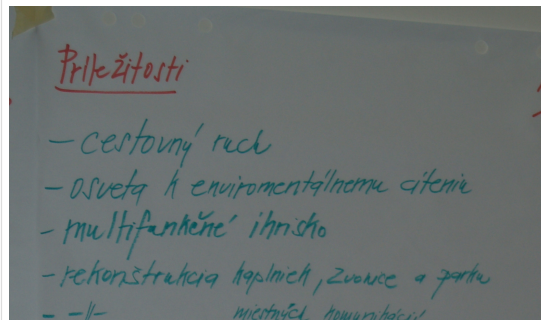 Príležitosti
- cestovný ruch
- osveta k enviromentálnemu cíteniu
- multifunkčné ihrisko
- rekonštrukcia kaplniek, zvonice a parku
- -||- miestných komunikácií